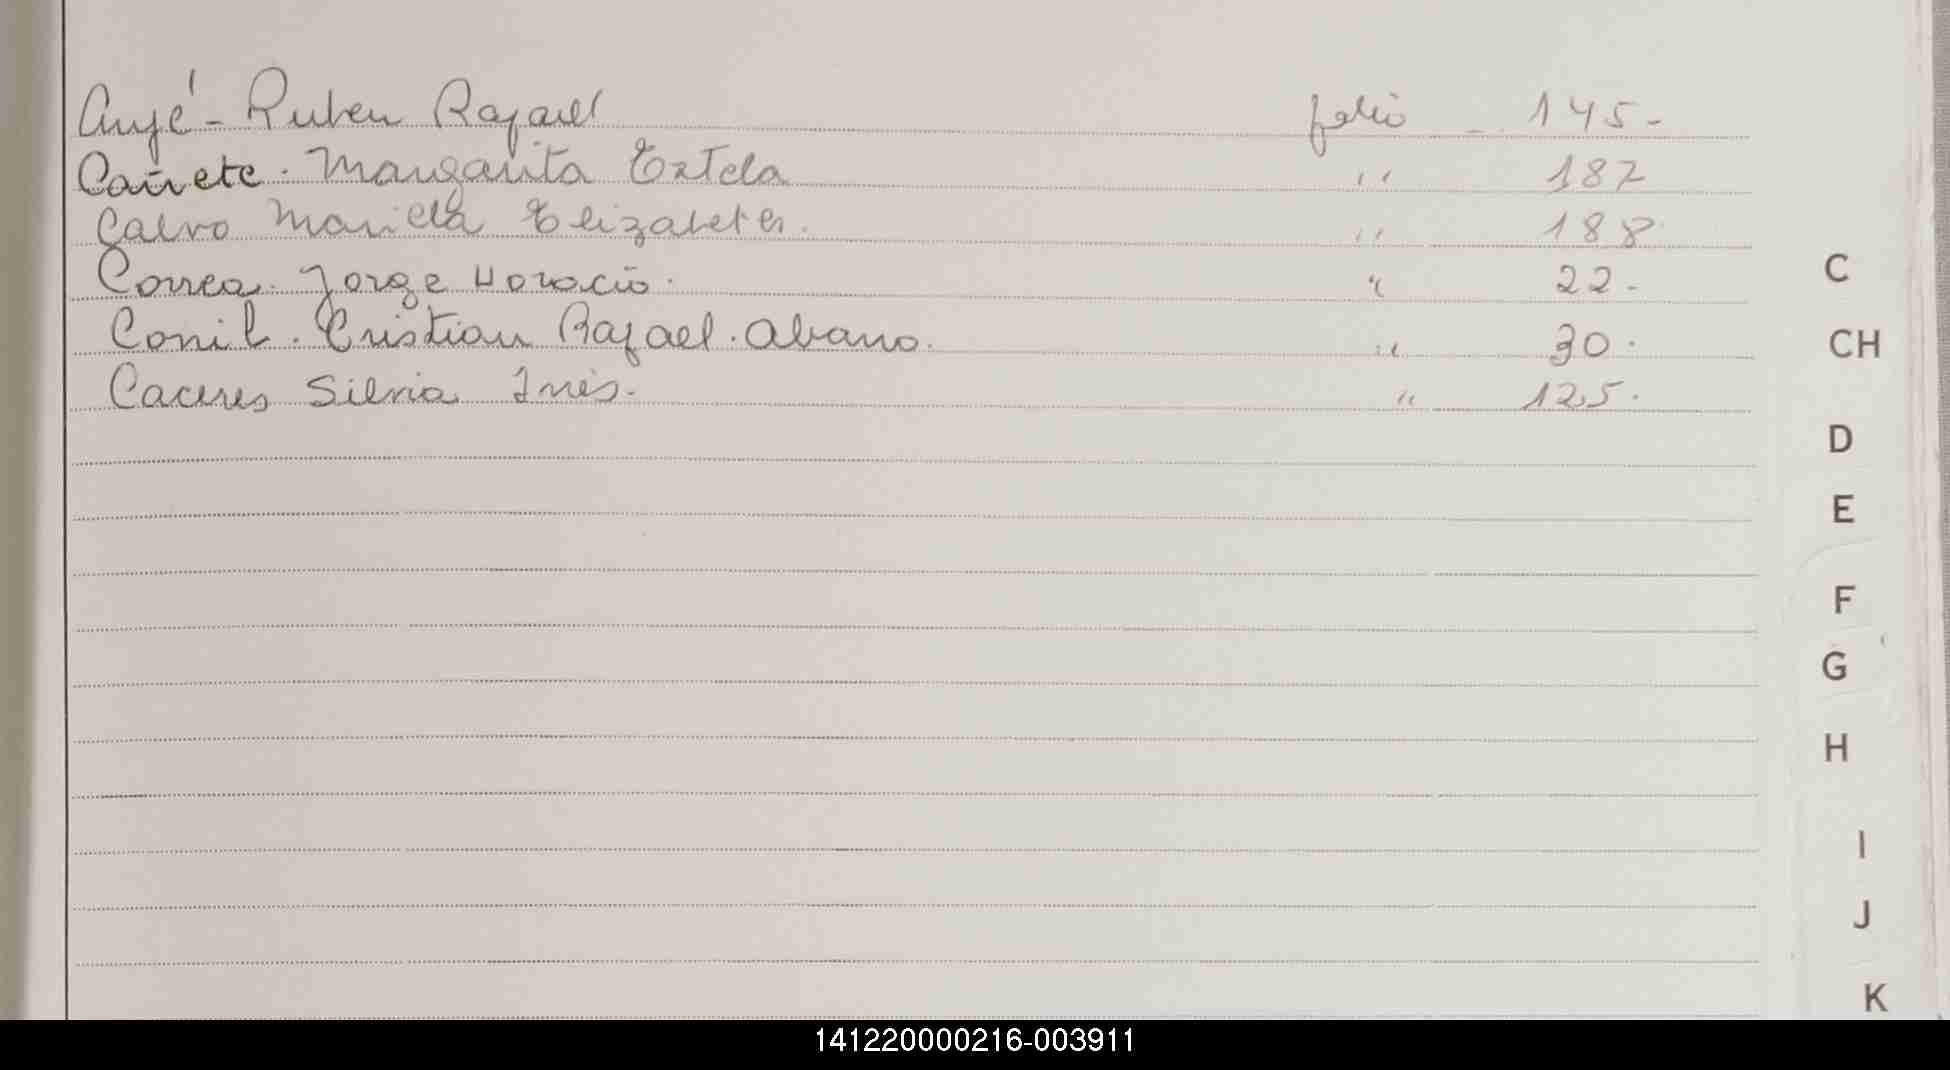 Auyé - Ruben Rafael folio - 145.-
Cañete. Margarita Extela " 187
Calvo Mariela Elizabeth. " 188
Correa. Jorge Horacio. " 22.-
Conil. Cristian Rafael. Abano. " 30.
Caceres Silvia Inés. " 125.
C
CH
D
E
F
G
H
I
J
K
141220000216-003911